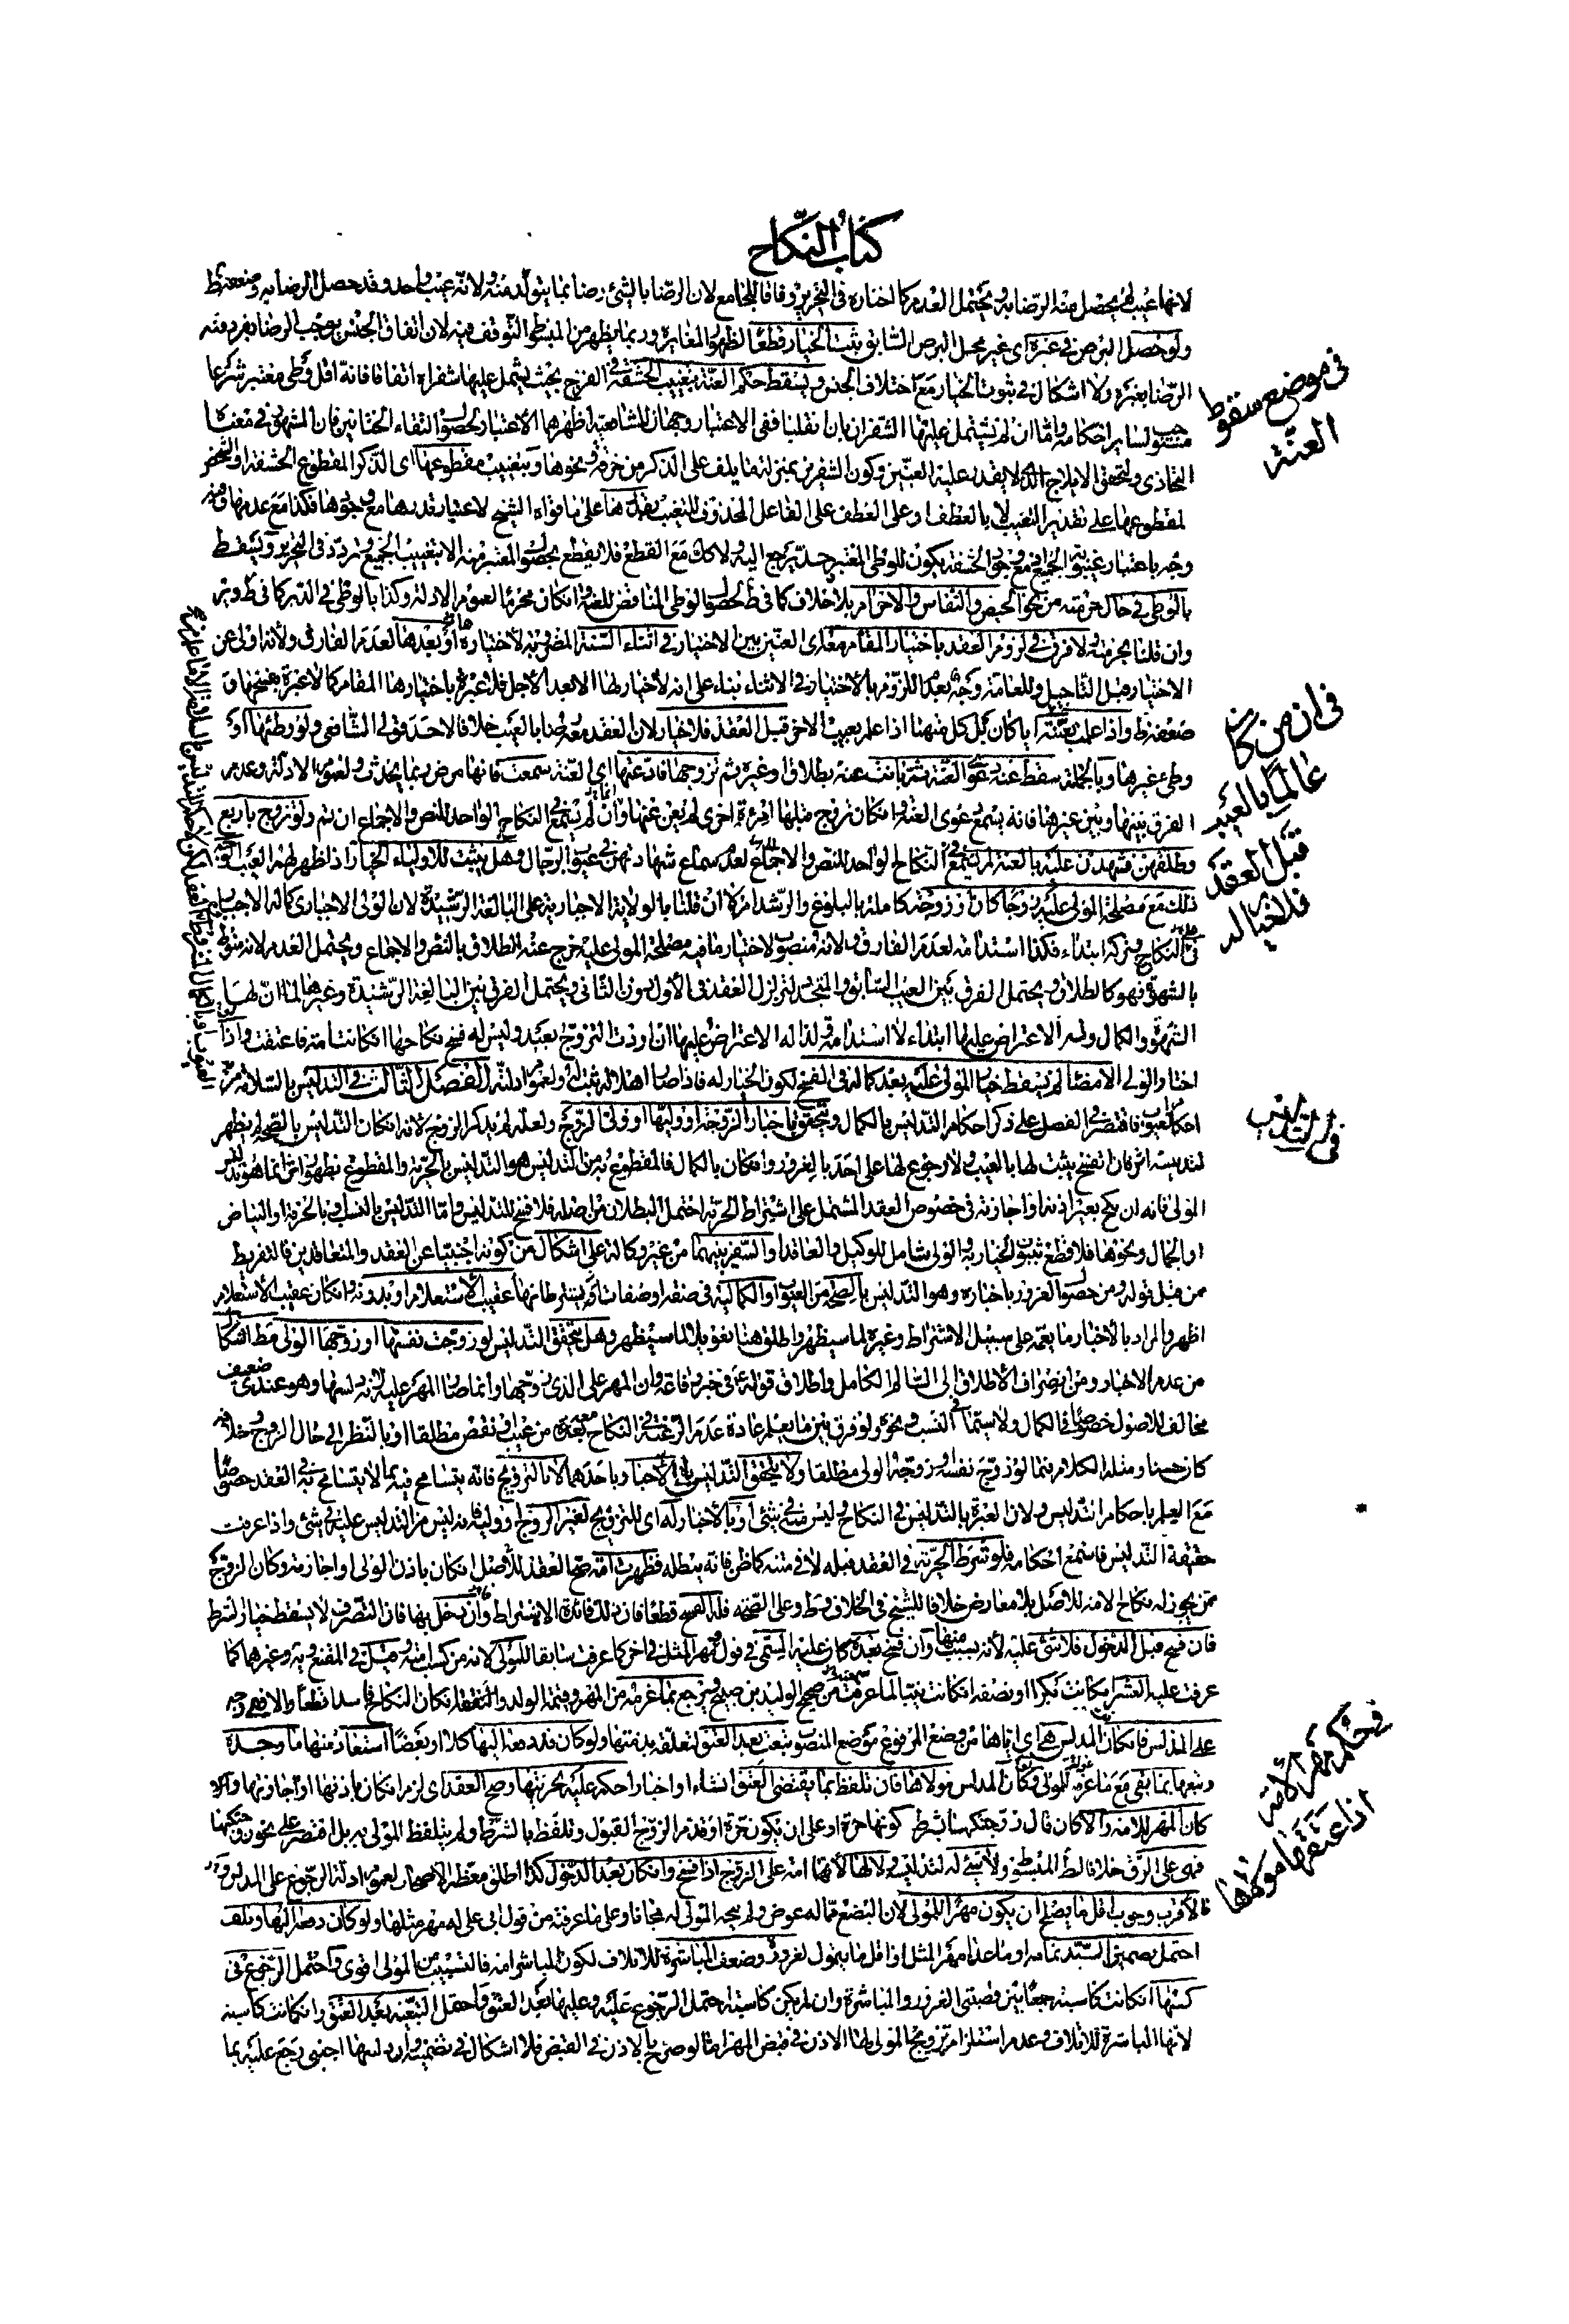 كتاب النكاح
لانها عيب لم يحصل منه الرضا به ويحتمل العدم كما اختاره في التحرير وفاقا للجامع لان الرضا بالشئ رضا بما يتولد منه ولانه عيب واحد وقد حصل الرضا به وضعفه ظ
ولو حصل البرص في غيره اى غير محل البرص السابق يثبت الخيار قطعا لظهور المغايرة وربما يظهر من المبسوط التوقف فيه لان اتفاق الجنس يوجب الرضا بفرد منه
الرضا بغيره ولا اشكال في ثبوت الخيار مع اختلاف الجنس ويسقط حكم العنة بتغييب الحشفة في الفرج بحيث يشتمل عليها شفراه اتفاقا فانه اقل وطى معتبر شرعا
لساير احكامه واما ان لم يشتمل عليها الشفران بان انقلبا ففى الاعتبار وجهان للشافعية اظهرهما الاعتبار لحصول التقاء الختانين فان المشهور في معناه
التحاذى ولتحقق الايلاج الذى لا يقدر عليه العنين وكون الشفرين بمنزلة ما يلف على الذكر من خرقة ونحوها وبتغييب مقطوعها اى الذكر المقطوع الحشفة
مقطوعها على تقدير التغييب لا بالعطف او على العطف على الفاعل المحذوف للتغييب بقدرها على ما قواه الشيخ لاعتبار قدرها مع وجودها فكذا مع عدمها وفيه
وجه باعتبار غيبوبة الجميع فمع وجود الحشفة يكون للوطى المعتبر حد يرجع اليه ولا كك مع القطع فلا يقطع بحصول المعتبر منه الا بتغييب الجميع وتردد في التحرير ويسقط
بالوطى في حال حرمته من نحو الحيض والنفاس والاحرام بلا خلاف كما في ط لحصول الوطى المناقض للعنة وان كان محرما لعموم الادلة وكذا بالوطى في الدبر كما في ط وير
وان قلنا بحرمته ولا فرق في لزوم العقد باختيار المقام معه اى العنين بين الاختيار في اثناء السنة المضروبة لاختياره او بعدها لعدم الفارق ولانه اولى من
الاختيار قبل التاجيل وللعامة وجه بعدم اللزوم بالاختيار في الاثناء بناء على انه لا خيار لها الا بعد الاجل فلا عبرة باختيارها المقام كما لا عبرة بفسخها و
ضعفه ظ واذا علمت بعنته بل كل منهما اذا علم بعيب الاخر قبل العقد فلا خيار لان العقد معه رضا بالعيب خلافا لاحد قولى الشافعى ولو وطئها او
وطئ غيرها وبالجملة سقط عنه دعوى العنة ثم بانت عنه بطلاق وغيره ثم تزوجها فادعتها اى العنة سمعت فانها مرض ربما يحدث ولعموم الادلة وعدم
الفرق بينها وبين غيرها فانه يسمع دعوى العنة وان كان تزوج قبلها امرءة اخرى لم يعن عنها وان لم يسمع في النكاح الواحد للنص والاجماع ان تم ولو تزوج باربع
وطلقهن فشهدن عليه بالعنة لم يسمع لعدم سماع شهادتهن في عيوب الرجال وهل يثبت للاولياء الخيار اذا ظهر لهم العيب
ذلك مع مصلحة المولى عليه زوجا كان او زوجة كاملة بالبلوغ والرشد ام لا ان قلنا بالولاية الاجبارية على البالغة الرشيدة لان الولى الاجبارى كما له الاجبار
في النكاح وتركه ابتداء فكذا استدامة لعدم الفارق ولانه منصوب لاختيار ما فيه مصلحة المولى عليه خرج عنه الطلاق بالنص والاجماع ويحتمل العدم لانه منوط
بالشهوة فهو كالطلاق ويحتمل الفرق بين العيب السابق والمتجدد لتزلزل العقد في الاول دون الثانى ويحتمل الفرق بين البالغة الرشيدة وغيرها لما ان لها
الشهوة والكمال وليس الاعتراض عليها ابتداء لا استدامة ولذا له الاعتراض عليها ان اردت التزوج بعبد وليس له فسخ نكاحها ان كانت امة فاعتقت واذا
اختار الولى الامضاء لم يسقط خيار المولى عليه بعد كماله في الفسخ لكون الخيار له فاذا صار اهلا له ثبت له ولعموم ادلته الفصل الثالث في التدليس بالسلامة من
احكام العيوب فاقتصر في الفصل على ذكر احكام التدليس بالكمال ويتحقق باخبار الزوجة او وليها او ولى الزوج ولعله لم يذكر الزوج لانه ان كان التدليس بالصحة لم يظهر
لتدليسه اثر فان الفسخ يثبت لها بالعيب ولا رجوع لها على احد بالغرور وان كان بالكمال فالمقطوع به من التدليس هو التدليس بالحرية والمقطوع بظهور اثره انما هو تدليس
المولى فانه ان نكح بغير اذنه او اجازته في خصوص العقد المشتمل على اشتراط الحرية احتمل البطلان من اصله فلا فسخ للتدليس واما التدليس بالنسب او بالحرفة او البياض
او الجمال ونحوها فلا قطع بثبوت الخيار به والولى شامل للوكيل والعاقد او السفير بينهما من غير وكالة على اشكال من كونه اجنبيا عن العقد والمتعاقدين فالتفريط
ممن قبل قوله ومن حصول الغرور باخباره وهو التدليس بالصحة من العيوب او الكمالية في صفة او صفات لم يشترطانها عقيب الاستعلام او بدونه وان كان عقيب الاستعلام
اظهر والمراد بالاخبار ما يعمه على سبيل الاشتراط وغيره لما سيظهر واطلق هنا تعويلا لما سيظهر وهل يتحقق التدليس لو زوجت نفسها او زوجها الولى مطلقا اشكال
من عدم الاخبار ومن انصراف الاطلاق الى السالم الكامل واطلاق قوله ع في خبر رفاعة وان المهر على الذى زوجها وانما صار المهر عليه لانه دلسها وهو عندى ضعيف
مخالف للاصول خصوصا في الكمال ولا سيما النسب ونحوه ولو فرق بين ما يعلم عادة عدم الرغبة في النكاح معه من عيب او نقص مطلقا او بالنظر الى حال الزوج وخلافه
كان حسنا ومثله الكلام فيما لو زوج نفسه او زوجه الولى مطلقا ولا يتحقق التدليس بالاخبار وباحدهما لا للتزويج فانه يتسامح فيه بما لا يتسامح به في العقد خصوصا
مع العلم باحكام التدليس ولان العبرة بالتدليس في النكاح وليس منه في شئ او بالاخبار له اى للتزويج لغير الزوج او وليه فانه ليس من التدليس عليه في شئ واذا عرفت
حقيقة التدليس فاستمع احكامه فلو شرط الحرية في العقد قبله لا في متنه كما ظن فانه يبطله فظهرت امة صح العقد للاصل ان كان باذن المولى او اجازته وكان الزوج
ممن يجوز له نكاح الامة للاصل بلا معارض خلافا للشيخ في الخلاف وط وعلى الصحة فله الفسخ قطعا فان ذلك فائدة الاشتراط وان دخل بها فان التصرف لا يسقط خيار الشرط
فان فسخ قبل الدخول فلا شئ عليه لانه بسبب منها وان فسخ بعده كان عليه المسمى في قول ومهر المثل في اخر كما عرفت سابقا للمولى لانه من كسب امته وقيل في المقنع ويه وغيرهما كما
عرفت عليه العشر ان كانت بكرا او نصفه ان كانت ثيبا لما عرفت من صحيح الوليد بن صبيح ويرجع بما غرمه من المهر وقيمة الولد والنفقة ان كان النكاح فاسدا قطعا والا ففى وجه
على المدلس فان كان المدلس هى اى اياها من وضع المرفوع موضع المنصوب تبعت بعد العتق لتعلقه بذمتها ولو كان قد دفعه اليها كلا او بعضا استعاد منها ما وجده
وتبعها بما بقى مع ما غرمه للمولى وان كان المدلس مولاها فان تلفظ بما يقتضى العتق انشاء او اخبارا حكم عليه بحريتها وصح العقد اى لزم ان كان باذنها او اجازتها و
كان المهر للامة والا كان قال زوجتكها بشرط كونها حرة او على ان يكون حرة او قدم الزوج القبول وتلفظ بالشرط ولم يتلفظ المولى به بل اقتصر على نحو زوجتكها
فهى على الرق خلافا لظ المبسوط ولا شئ له لتدليسه ولا لها لانها امة على الزوج اذا فسخ وان كان بعد الدخول كذا اطلق معظم الاصحاب لعموم ادلة الرجوع على المدلس و
فالاقرب وجوب اقل ما يصلح ان يكون مهرا للمولى لان البضع مما له عوض ولم يبحه المولى له مجانا وعلى ما عرفته من قول ابى على له مهر مثلها ولو كان دفعه اليها وتلف
احتمل تضمين السيد تمامه او ما عدا مهر المثل او اقل ما يتمول لغروره وضعف المباشرة للاتلاف لكون المباشر امة فالتسبيب من المولى اقوى واحتمل الرجوع في
كسبها ان كانت كاسبة جمعا بين قضيتى الغرور والمباشرة وان لم يكن كاسبة احتمل الرجوع عليه وعليها بعد العتق واحتمل التبعية بعد العتق وان كانت كاسبة
لانها المباشرة للاتلاف وعدم استلزام تزويج المولى لها الاذن في قبض المهر اما لو صرح بالاذن في القبض فلا اشكال في تضمينه وان دلسها اجنبى رجع عليه بما
في موضع سقوط
العنة
في ان من كان
عالما بالعيب
قبل العقد
فلا خيار له
في التدليس
في حكم مهر الامة
اذا عتقها مولاها